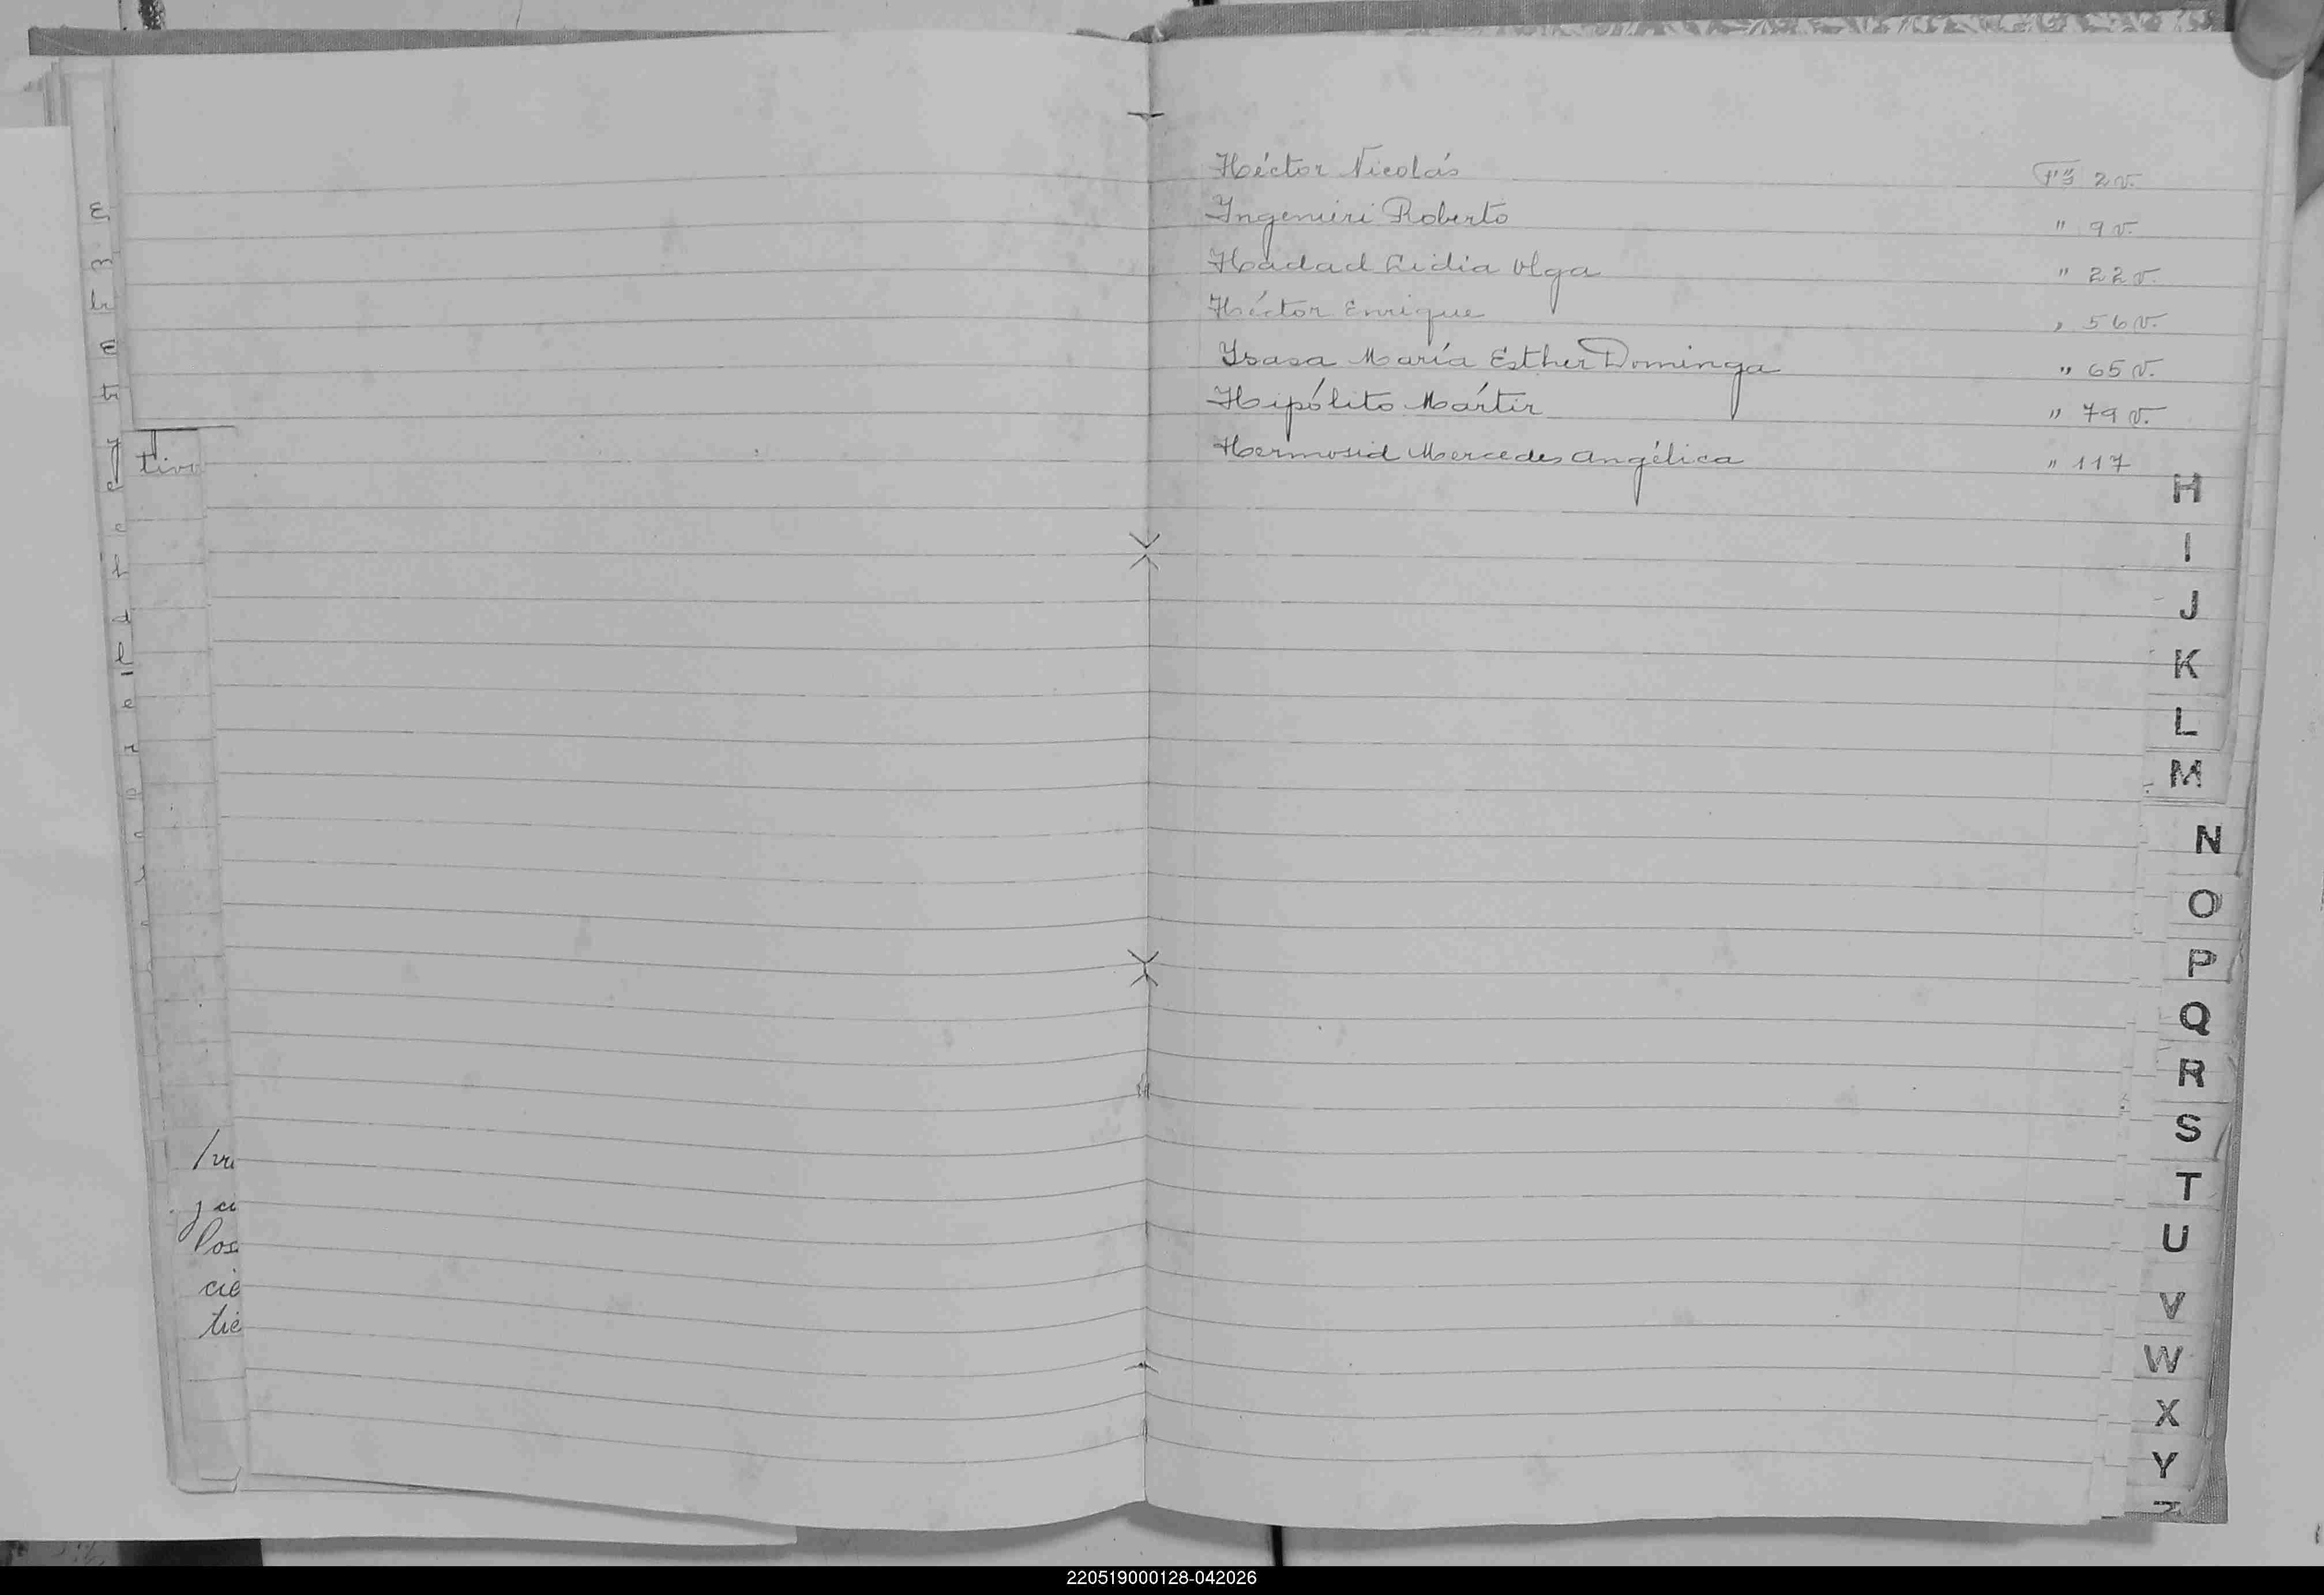 Héctor Nicolás Fs 2 v.
Ingenieri Roberto " 9 v.
Hadad Lidia Olga " 22 v.
Héctor Enrique " 56 v.
Isasa María Esther Dominga " 65 v.
Hipólito Mártir " 79 v.
Hermosid Mercedes Angélica " 117
H
I
J
K
L
M
N
O
P
Q
R
S
T
U
V
W
X
Y
tivo
Pos
cie
tie
220519000128-042026